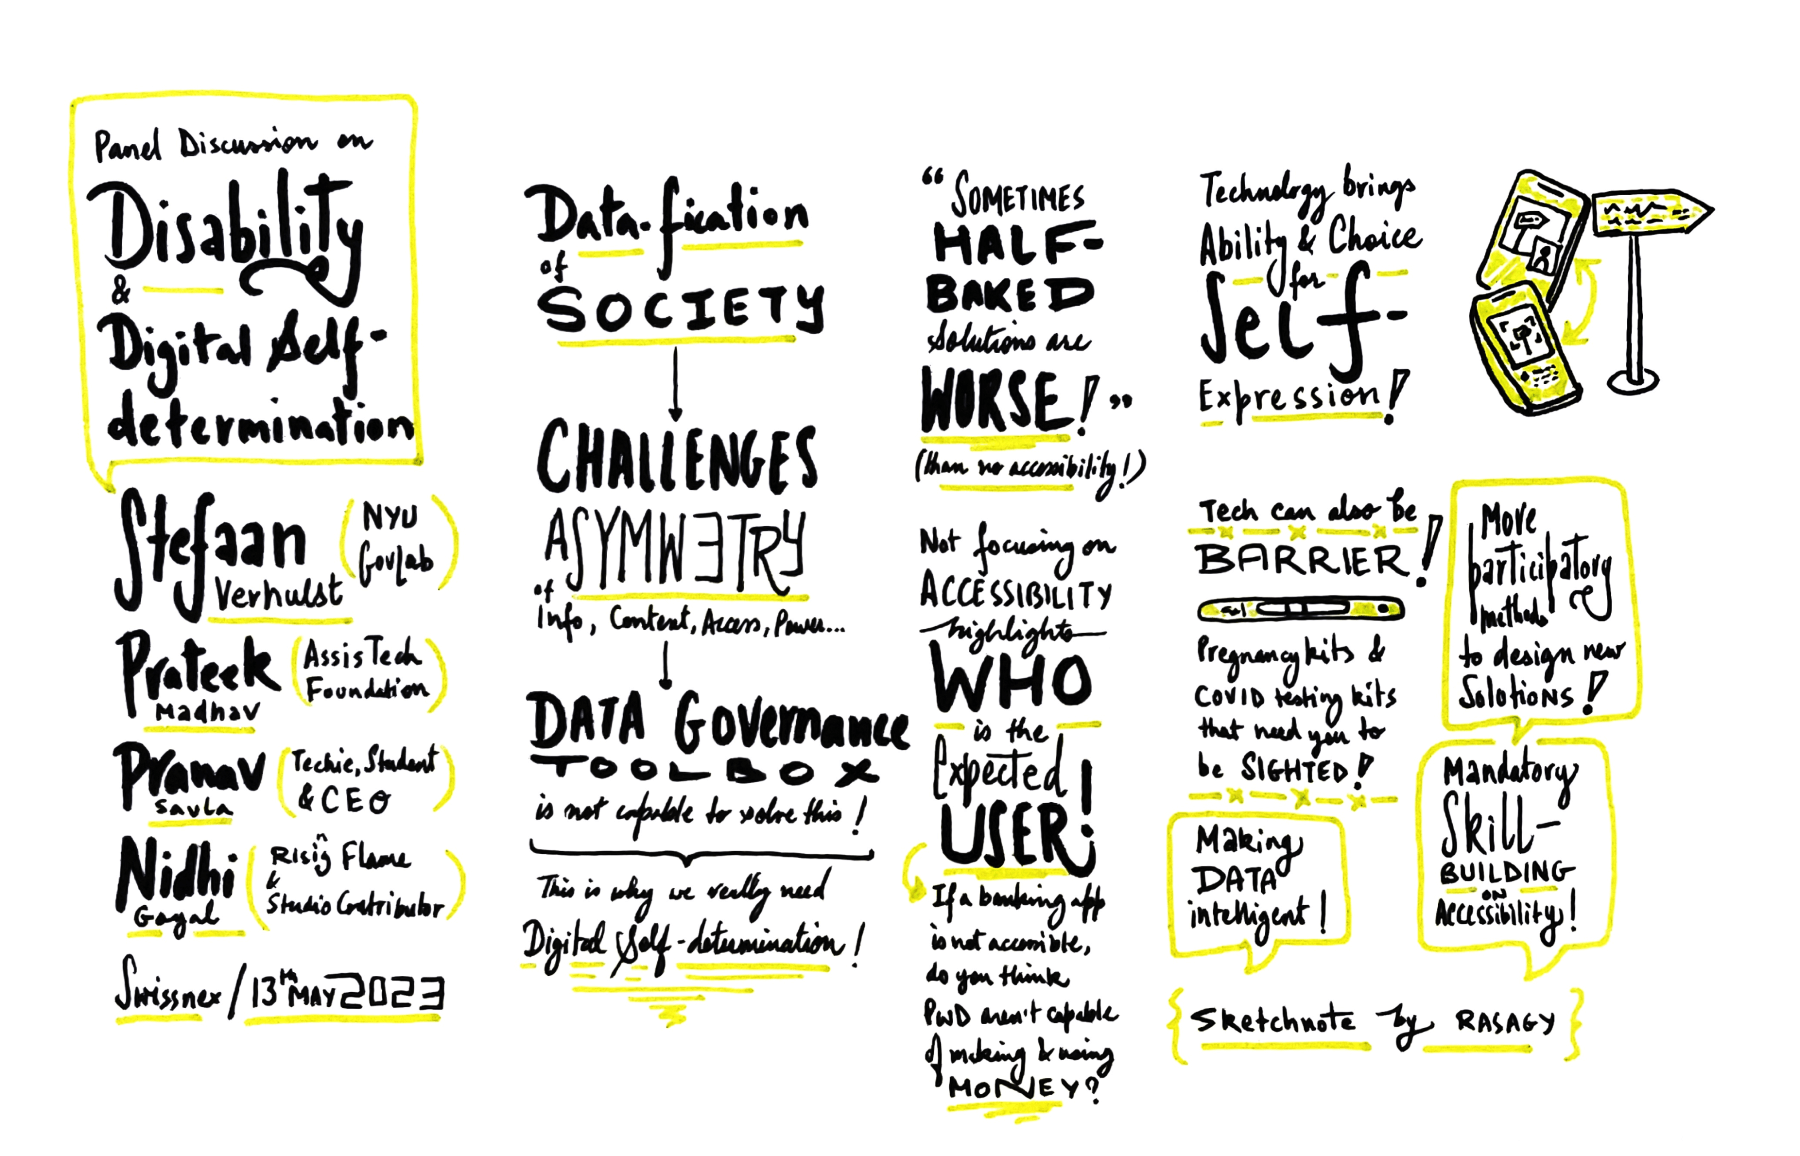 Panel Discussion on
Disability
&
Digital Self-
determination
Stefaan
Verhulst
(NYU
GovLab)
Prateek
Madhav
(AssisTech
Foundation)
Pranav
Savla
(Techie, Student
& CEO)
Nidhi
Goyal
(Rising Flame
&
Studio Contributor)
Swissnex / 13th MAY 2023
Data-fication
of
SOCIETY
CHALLENGES
ASYMMETRY
of
Info, Content, Access, Power...
DATA Governance
TOOLBOX
is not capable to solve this!
This is why we really need
Digital Self-determination!
"SOMETIMES
HALF-
BAKED
solutions are
WORSE!"
(than no accessibility!)
Not focusing on
ACCESSIBILITY
highlights
WHO
is the
Expected
USER!
If a banking app
is not accessible,
do you think
PwD aren't capable
of making & using
MONEY?
Technology brings
Ability & Choice
for
Self-
Expression!
Tech can also be
BARRIER!
Pregnancy kits &
COVID testing kits
that need you to
be SIGHTED!
Making
DATA
intelligent!
More
participatory
methods
to design new
Solutions!
Mandatory
Skill-
BUILDING
ON
Accessibility!
{Sketchnote by RASAGY}